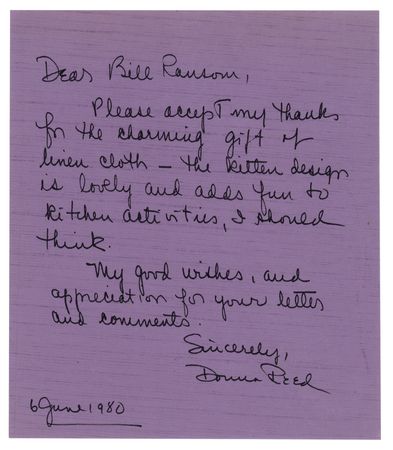 Dear Bill Ransom,
Please accept my thanks
for the charming gift of
linen cloth – the kitten design
is lovely and adds fun to
kitchen activities, I should
think.
My good wishes, and
appreciation for your letter
and comments.
Sincerely,
Donna Reed
6 June 1980